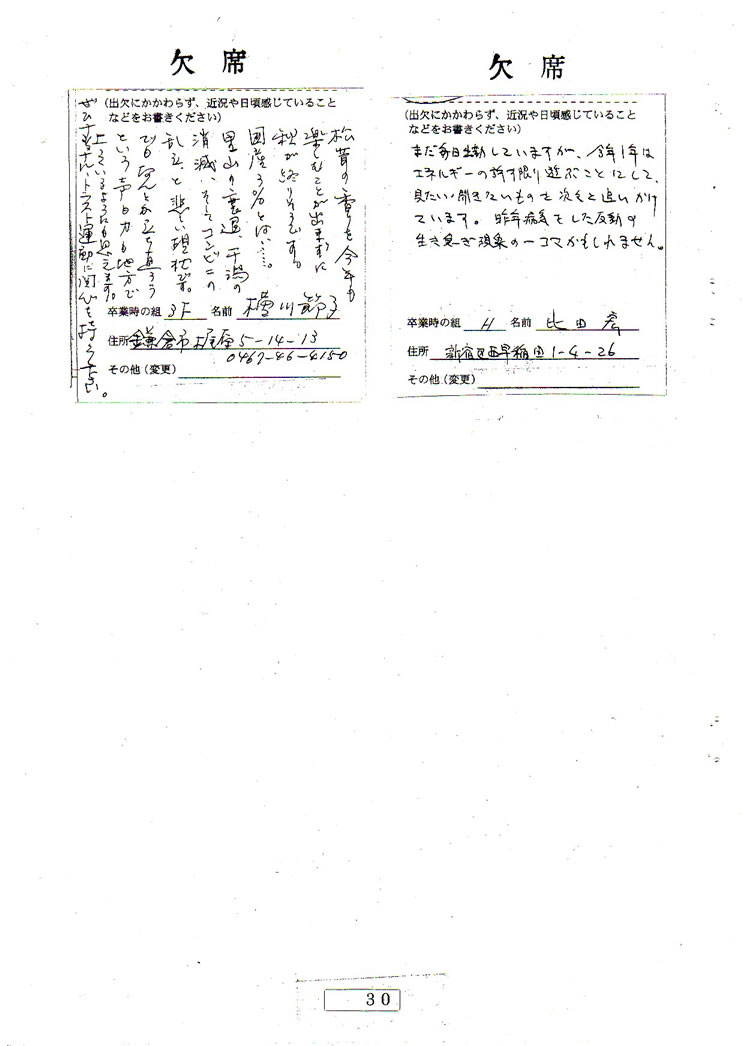 欠席
(出欠にかかわらず、近況や日頃感じていること
などをお書きください)
松茸の香を今年も
楽しむことが出来ずに
秋が終りそうです。
国産3%とは……。
里山の裏退、干潟の
消滅、そしてコンビニの
乱立と悲しい現状です。
でもなんとか立ち直ろう
という声も力も地方で
上っているようにも思えます。
ぜひナショナル・トラスト運動に関心を持って下さい。
卒業時の組 3F 名前 横川節子
住所 鎌倉市梶原5-14-13
0467-46-4150
その他(変更)
欠席
(出欠にかかわらず、近況や日頃感じていること
などをお書きください)
まだ毎日出勤していますが、今年1年は
エネルギーの許す限り遊ぶことにして、
見たい・聞きたいものを次々と追いかけ
ています。昨年病気をした反動の
生き急ぎ現象の一コマかもしれません。
卒業時の組 H 名前 比田
住所 新宿区西早稲田1-4-26
その他(変更)
30